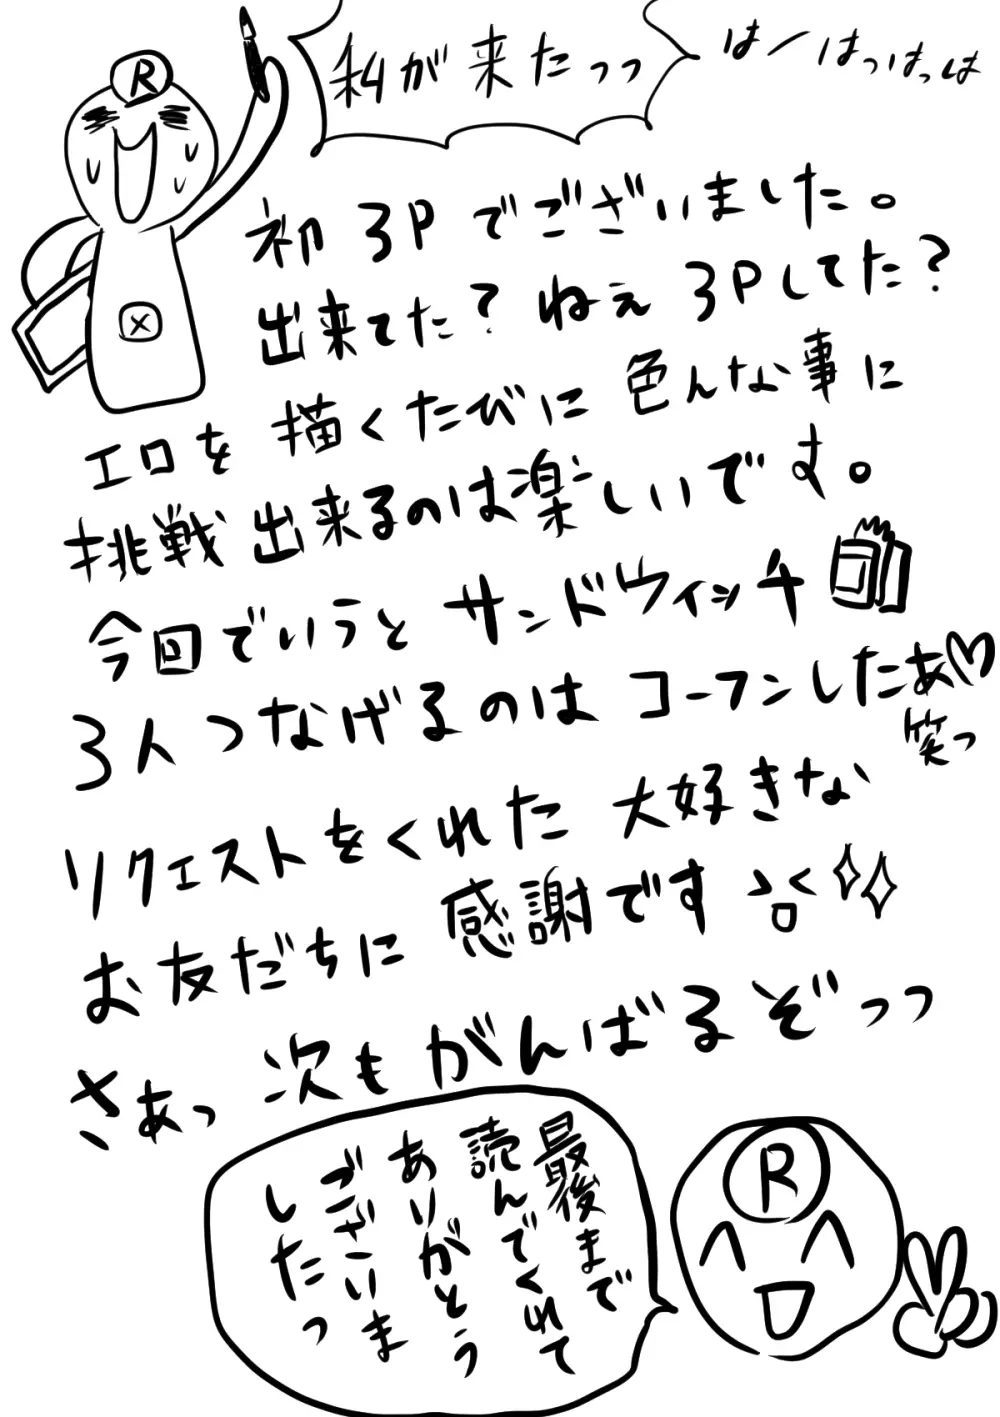 R
私が来たっっ
はーはっはっは
初3Pでございました。
出来てた？ねぇ3Pしてた？
エロを描くたびに色んな事に
挑戦出来るのは楽しいです。
今回でいうとサンドウィッチ
3人つなげるのはコーフンしたぁ♡
笑っ
リクエストをくれた大好きな
お友だちに感謝です
さぁっ次もがんばるぞっっ
最後まで
読んでくれて
ありがとう
ございま
したっ
R